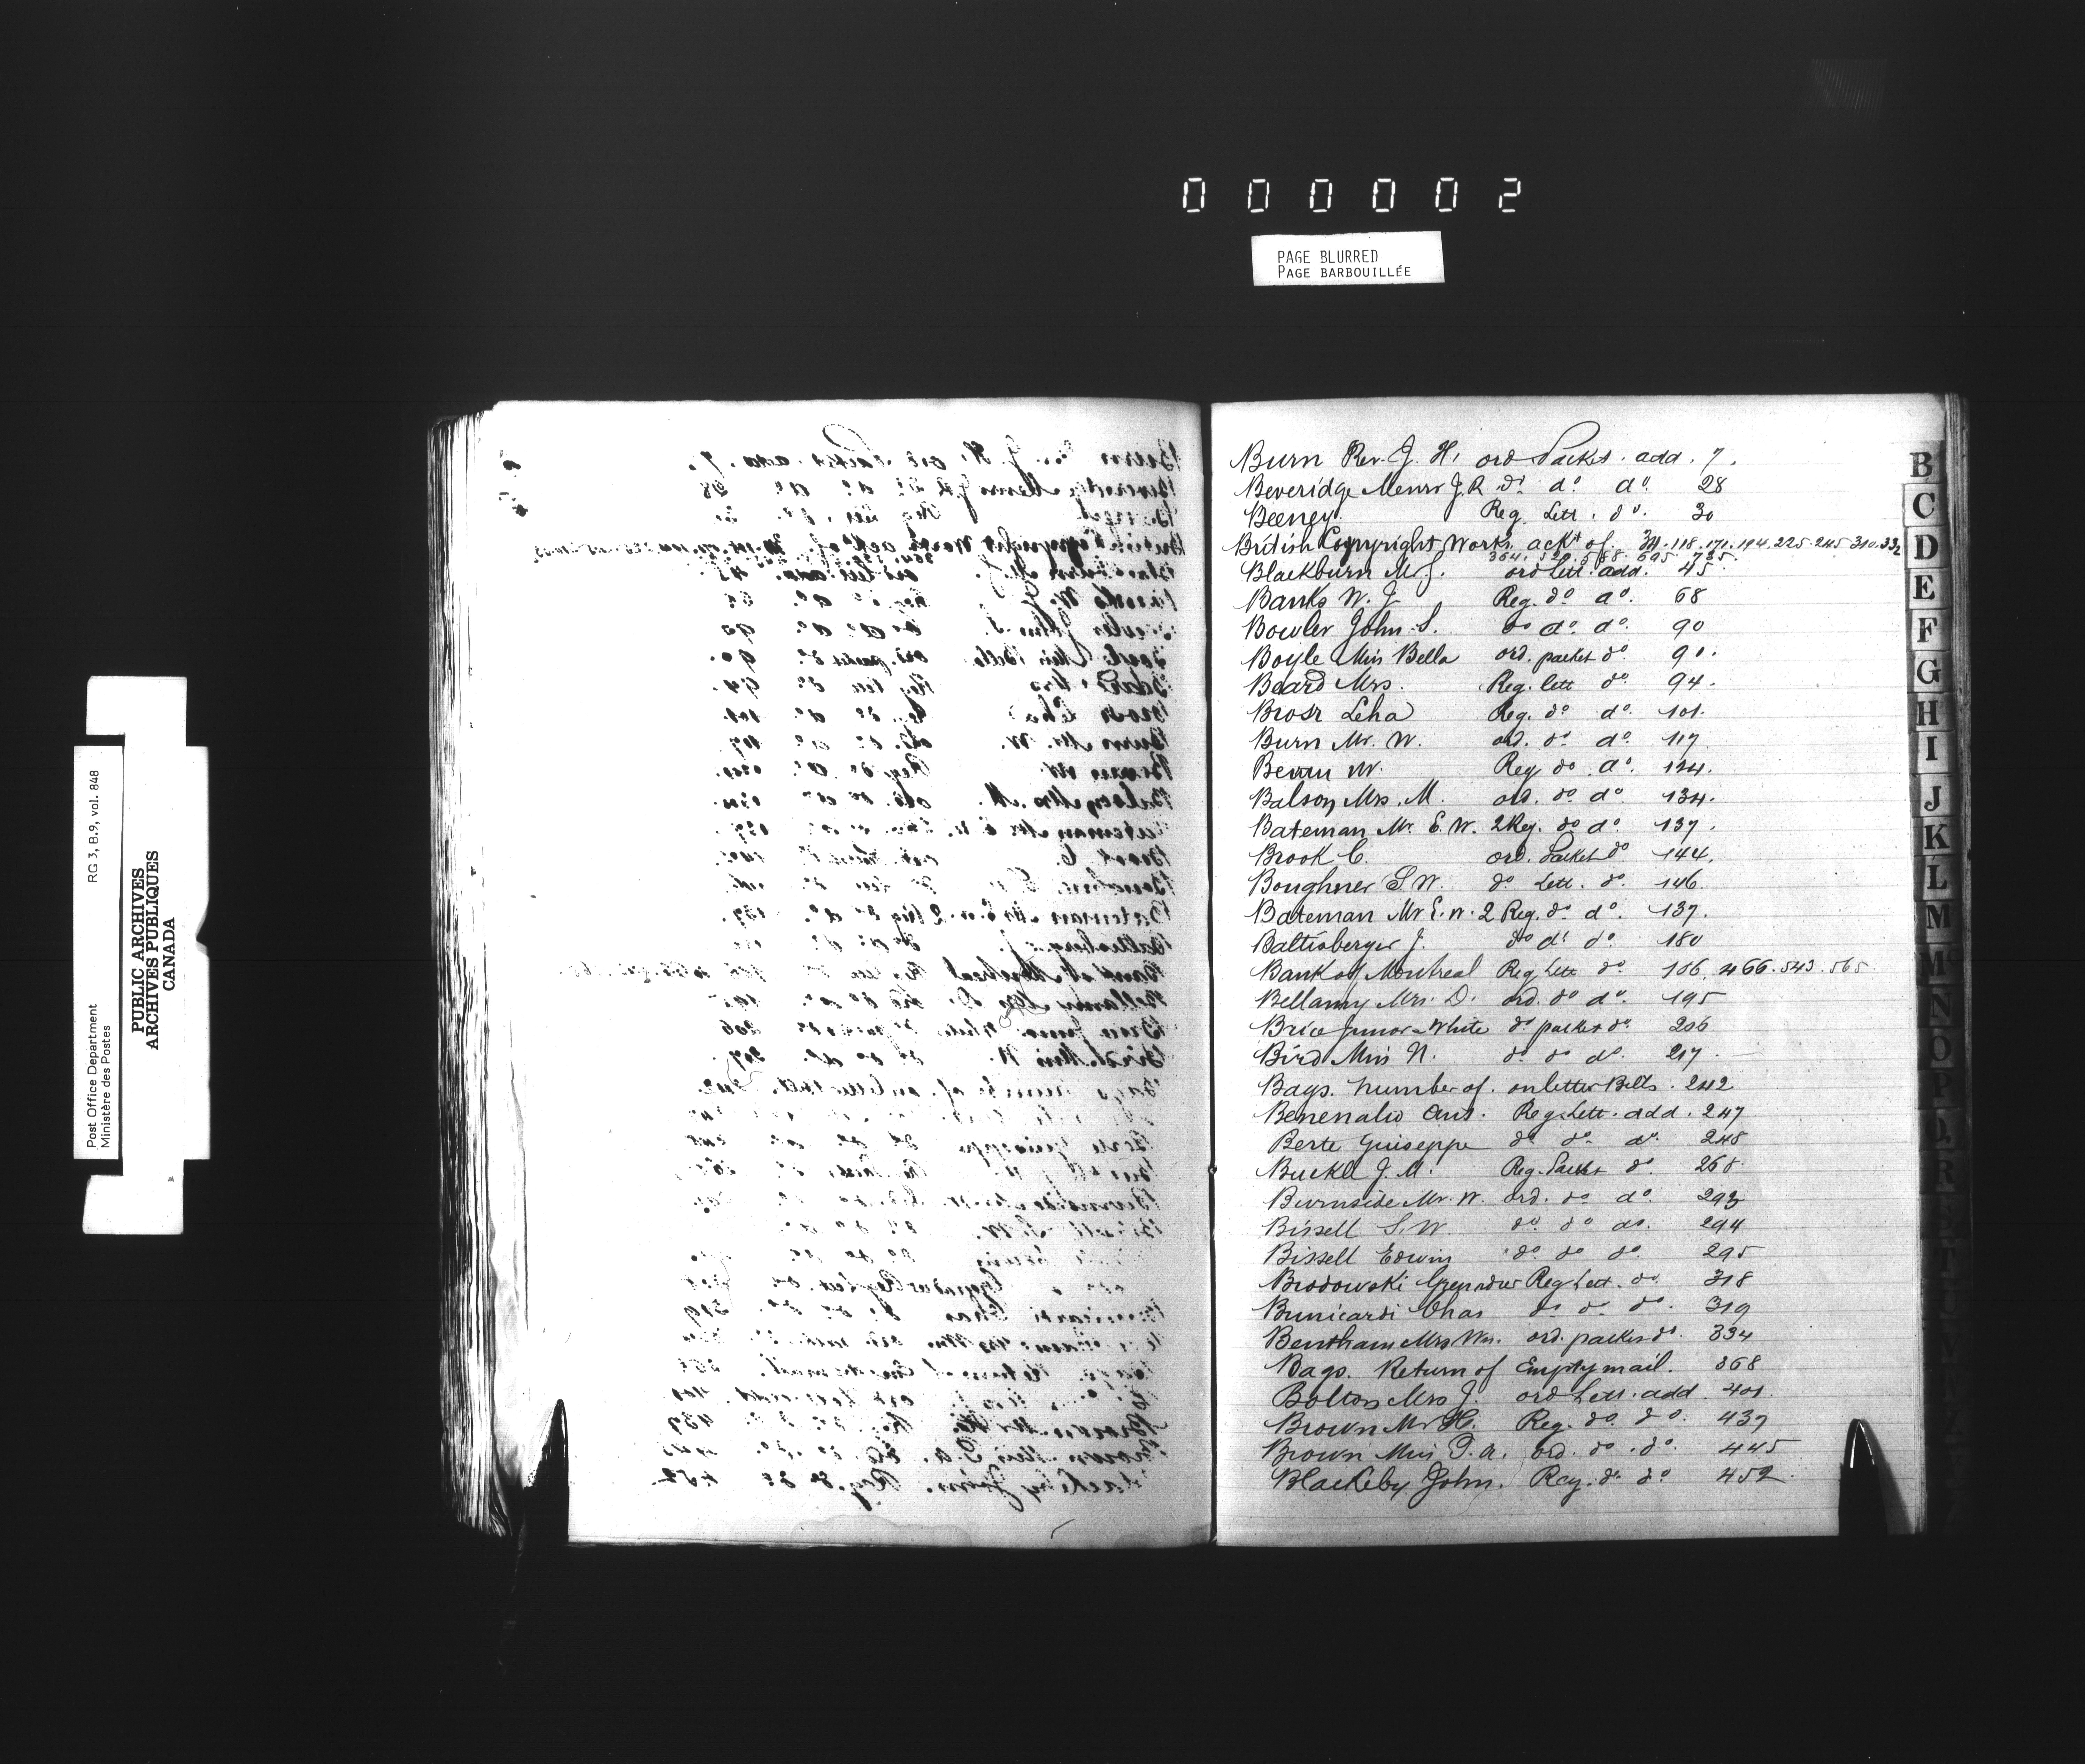 000002
PAGE BLURRED
PAGE BARBOUILLÉE
Post Office Department RG 3, B.9, vol. 848
Ministère des Postes
PUBLIC ARCHIVES
ARCHIVES PUBLIQUES
CANADA
Burn Rev. J. H. ord Packet. add. 7.
Beveridge Messrs J. R. do. do. do. 28
Beeney. Reg. Lett. do. 30
British Copyright Works. ackt of. 34. 118. 171. 194. 225. 245. 310. 332
364. 520. 588. 695. 725.
Blackburn M. J. ord Lett. add. 45
Banks W. J. Reg. do do. 68
Bowler John. S. do do. do. 90
Boyle Miss Bella ord. packet do. 91.
Beard Mrs. Reg. lett do. 94.
Brosr Leha Reg. do do. 101.
Burn Mr. W. ord. do. do. 117
Bevan W. Reg do. do. 124.
Balson Mrs. M. ord. do. do. 134.
Bateman Mr. E. W. 2 Reg. do do. 137.
Brook C. ord. Packet do 144.
Boughner S. W. do Lett. do. 146.
Bateman Mr E. W. 2 Reg. do. do. 137.
Baltisberger J. do do do. 180
Bank of Montreal Reg Lett do. 186. 466. 543. 565.
Bellamy Mrs. D. ord. do do. 195
Brice Junor White do packet do. 206
Bird Miss N. do. do do. 217.
Bags. number of. on letter Bills. 242
Benenalio Ant. Reg. Lett. add. 247
Berte Guiseppe do do. do. 248
Buckle J. M. Reg. Packet do. 268.
Burnside Mr. W. ord. do do. 293
Bissell S. W. do do do. 294
Bissell Edwin do. do do. 295
Brodowski Reg Lett. do. 318
Bunicardi Chas do do do. 319
Bentham Mrs Wm. ord. packet do. 334
Bags. Return of Empty mail. 368
Bolton Mrs J. ord Lett. add. 401.
Brown Mr H. Reg. do. do. 437
Brown Miss T. A. ord. do. do. 445
Blackeby John. Reg. do. do 452.
B
C
D
E
F
G
H
I
J
K
L
M
Mc
N
O
P
Q
R